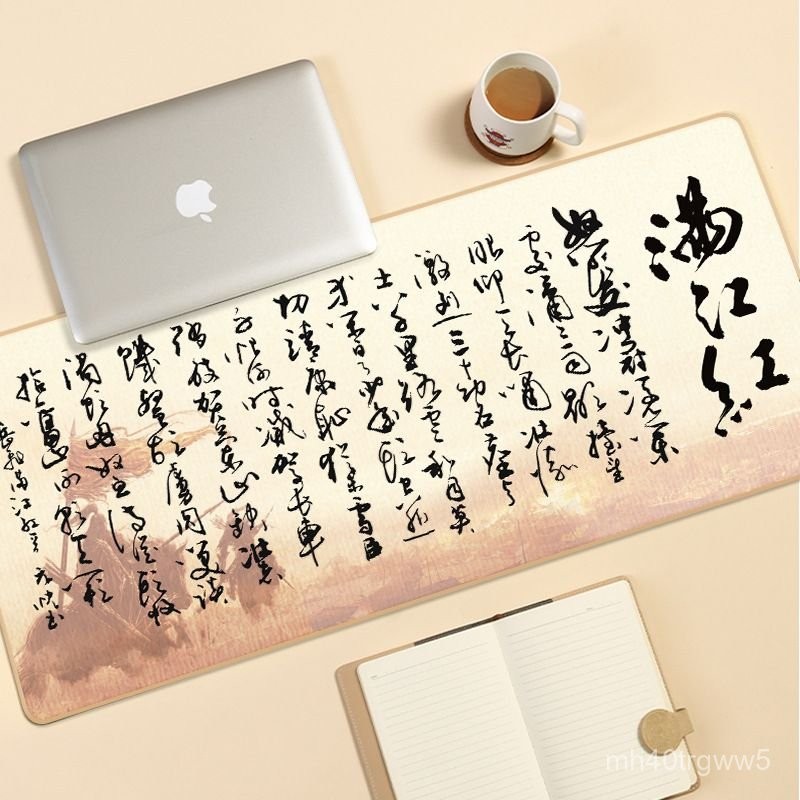 满江红
怒髮冲冠凭阑
处潇潇雨歇抬望
眼仰天长啸壮怀
激烈三十功名尘与
土八千里路云和月莫
切靖康耻犹未雪臣
子恨何时灭驾长车
踏破贺兰山缺壮志
饥餐胡虏肉笑谈
渴饮匈奴血待从头收
拾旧山河朝天阙
mh40trgww5